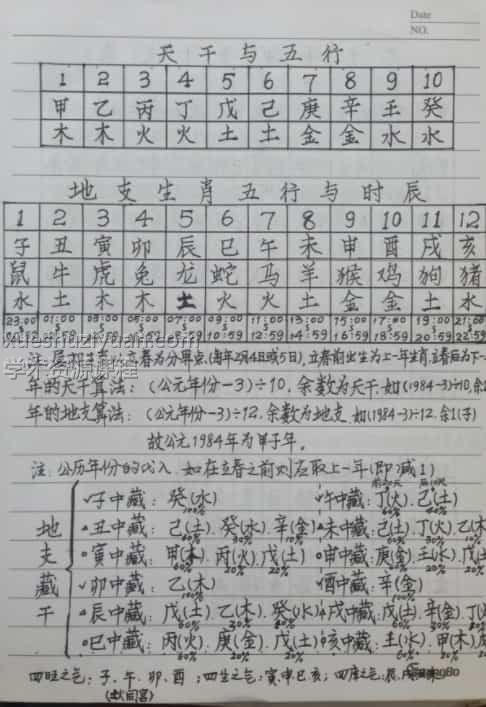 Date
NO.
天干与五行
1 2 3 4 5 6 7 8 9 10
甲 乙 丙 丁 戊 己 庚 辛 壬 癸
木 木 火 火 土 土 金 金 水 水
地支生肖五行与时辰
1 2 3 4 5 6 7 8 9 10 11 12
子 丑 寅 卯 辰 巳 午 未 申 酉 戌 亥
鼠 牛 虎 兔 龙 蛇 马 羊 猴 鸡 狗 猪
水 土 木 木 土 火 火 土 金 金 土 水
23:00 01:00 03:00 05:00 07:00 09:00 11:00 13:00 15:00 17:00 19:00 21:00
12:59 14:59 16:59 18:59 20:59 22:59
xueshuziyuan.com
学术资源课程
注: 立春为分界点(每年2月4日或5日),立春前出生为上一年生肖,立春后为下一
年的天干算法: (公元年份-3)÷10, 余数为天干, 如(1984-3)÷10, 余1
年的地支算法: (公元年份-3)÷12, 余数为地支, 如(1984-3)÷12, 余1(子)
故公元1984年为甲子年。
注: 公历年份的代入, 如在立春之前则应取上一年(即减1)
地支藏干
子中藏: 癸(水) 100% 午中藏: 丁(火) 己(土)
丑中藏: 己(土) 60% 癸(水) 30% 辛(金) 未中藏: 己(土) 60% 丁(火) 30% 乙(木
寅中藏: 甲(木) 60% 丙(火) 20% 戊(土) 20% 申中藏: 庚(金) 60% 壬(水) 20% 戊(土
卯中藏: 乙(木) 100% 酉中藏: 辛(金) 100%
辰中藏: 戊(土) 60% 乙(木) 30% 癸(水) 戌中藏: 戊(土) 60% 辛(金) 30% 丁(
巳中藏: 丙(火) 60% 庚(金) 20% 戊(土) 20% 亥中藏: 壬(水) 60% 甲(木) 20%
四旺之气: 子、午、卯、酉; 四生之气: 寅申巳亥; 四库之气: 辰